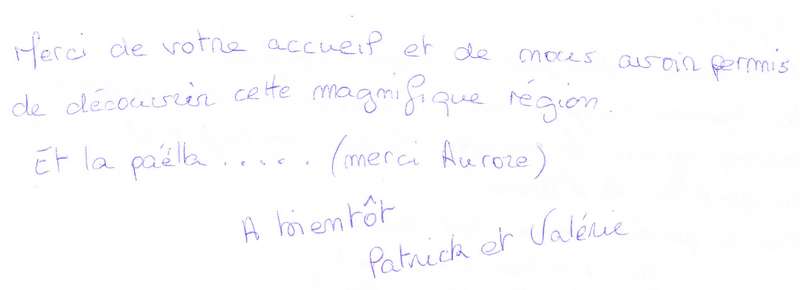 Merci de votre accueil et de nous avoir permis
de découvrir cette magnifique région.
Et la paëlla ..... (merci Aurore)
A bientôt
Patrick et Valérie